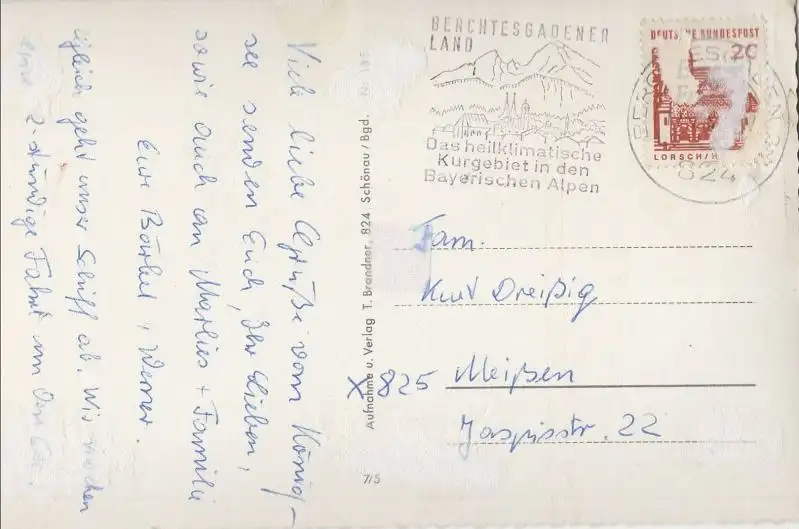 Viele liebe Grüße vom König-
see senden Euch, Ihr Lieben,
sowie auch an Marlies + Familie
Eure Bärbel + Werner.
gleich geht unser Schiff ab. Wir machen
eine 2-stündige Fahrt um den
Aufnahme u. Verlag T. Brandner, 824 Schönau/Bgd.
7/5
BERCHTESGADENER
LAND
Das heilklimatische
Kurgebiet in den
Bayerischen Alpen
DEUTSCHE BUNDESPOST
20
LORSCH/H
824
Fam.
Kurt Dreißig
X 825 Meißen
Jaspisstr. 22